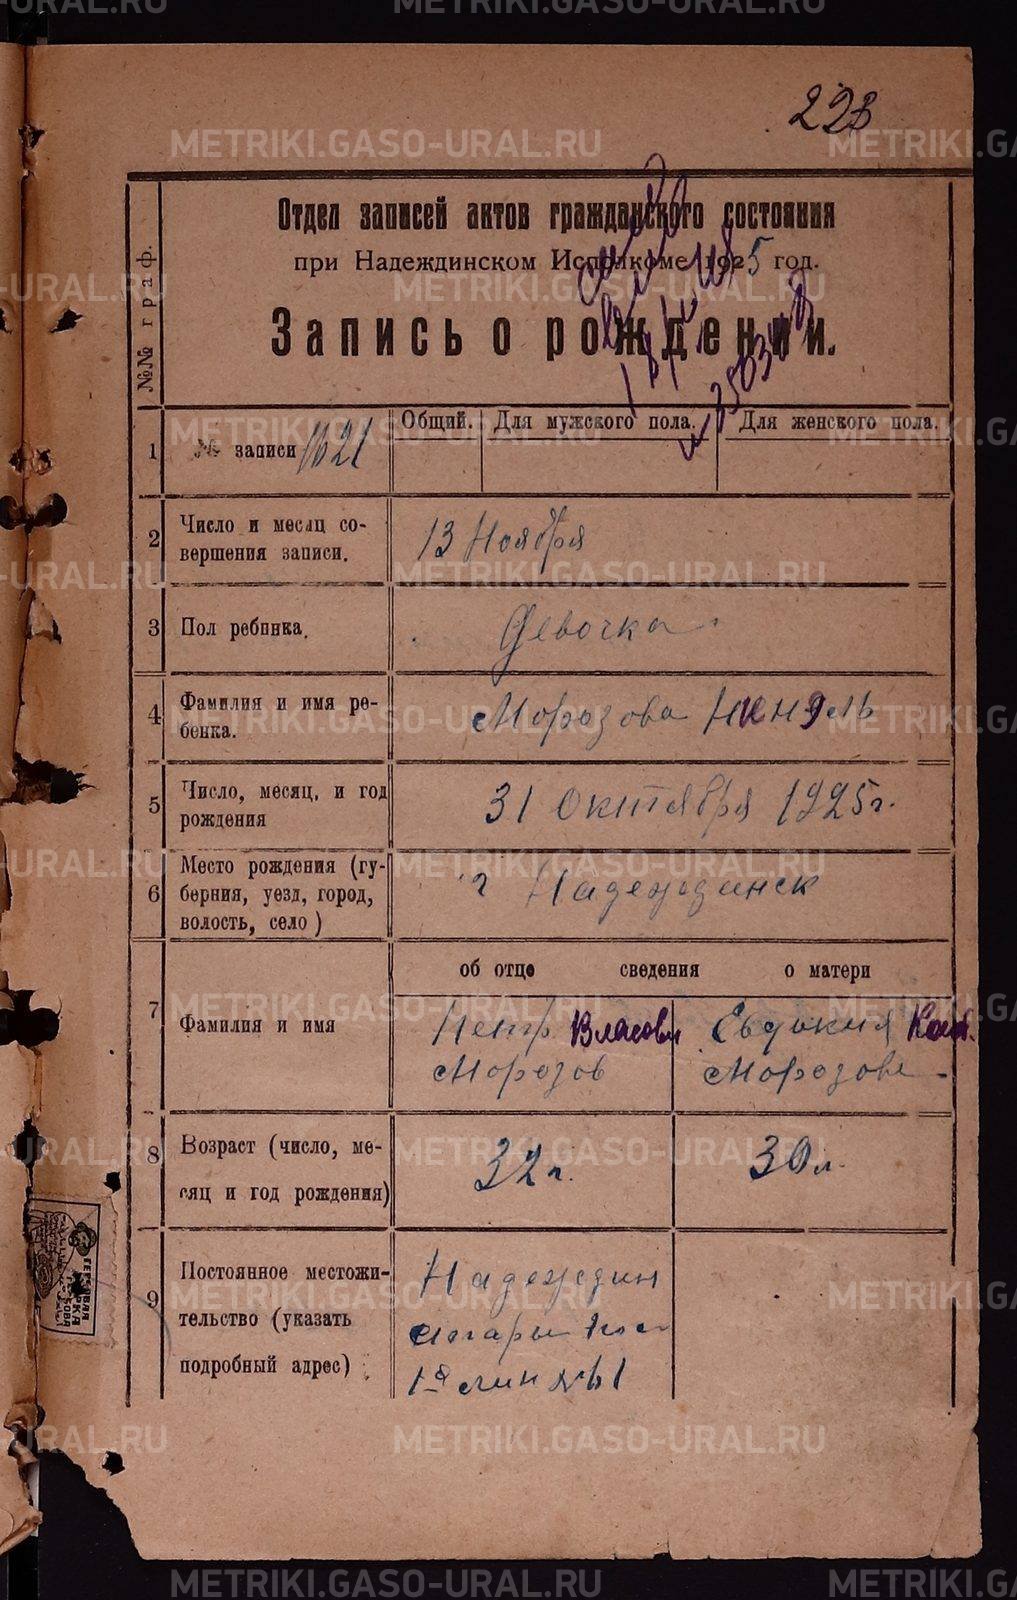 METRIKI.GASO-URAL.RU
223
№№ граф.
Отдел записей актов гражданского состояния
при Надеждинском Исполкоме 1925 год.
Запись о рождении.
1 № записи 1621 Общий. Для мужского пола. Для женского пола.
2 Число и месяц со-
вершения записи. 13 Ноября
3 Пол ребенка. Девочка
4 Фамилия и имя ре-
бенка. Морозова Нинэль
5 Число, месяц, и год
рождения 31 Октября 1925 г.
6 Место рождения (гу-
берния, уезд, город,
волость, село) г Надеждинск
об отце сведения о матери
7 Фамилия и имя
Петр Власов
Морозов
Евдокия
Морозова
8 Возраст (число, ме-
сяц и год рождения) 32 г. 30 л.
9 Постоянное местожи-
тельство (указать
подробный адрес)
Надеждин
Старый пос
1-я лин № 1
ГЕРБОВАЯ
МАРКА